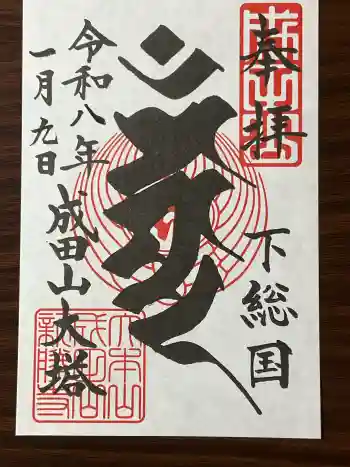 奉拝
下総国
成田山大塔
令和八年
一月九日